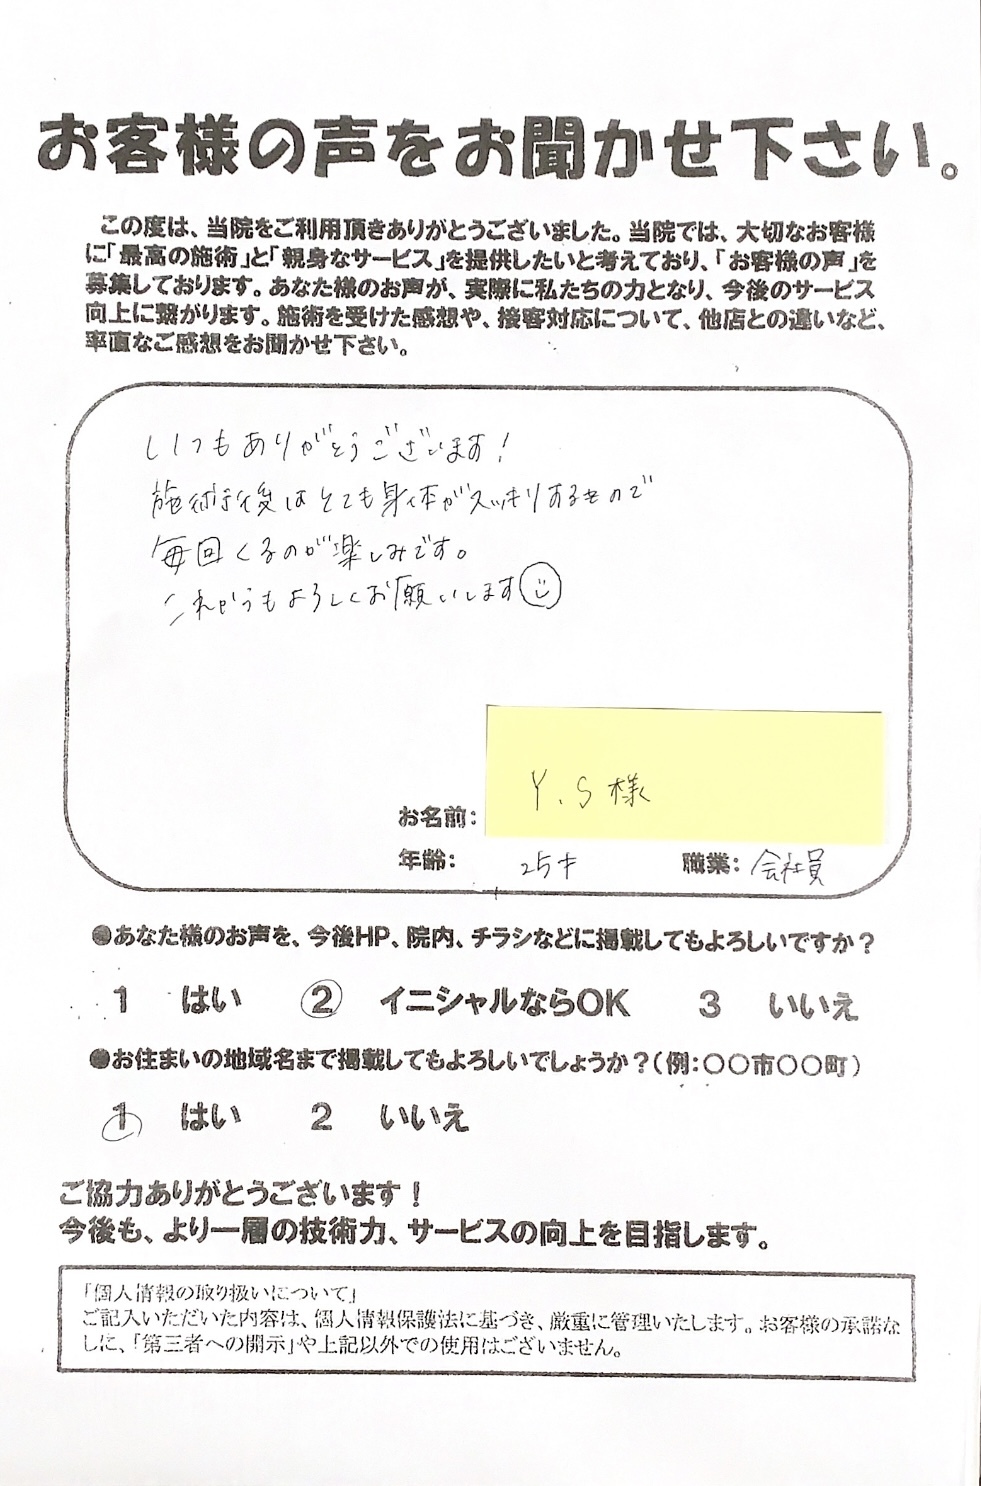 お客様の声をお聞かせ下さい。
この度は、当院をご利用頂きありがとうございました。当院では、大切なお客様
に「最高の施術」と「親身なサービス」を提供したいと考えており、「お客様の声」を
募集しております。あなた様のお声が、実際に私たちの力となり、今後のサービス
向上に繋がります。施術を受けた感想や、接客対応について、他店との違いなど、
率直なご感想をお聞かせ下さい。
いつもありがとうございます!
施術後はとても身体がスッキリするもので
毎回くるのが楽しみです。
これからもよろしくお願いします
お名前: Y.S様
年齢: 25才 職業: 会社員
●あなた様のお声を、今後HP、院内、チラシなどに掲載してもよろしいですか?
1 はい 2 イニシャルならOK 3 いいえ
●お住まいの地域名まで掲載してもよろしいでしょうか?(例:○○市○○町)
1 はい 2 いいえ
ご協力ありがとうございます!
今後も、より一層の技術力、サービスの向上を目指します。
「個人情報の取り扱いについて」
ご記入いただいた内容は、個人情報保護法に基づき、厳重に管理いたします。お客様の承諾な
しに、「第三者への開示」や上記以外での使用はございません。